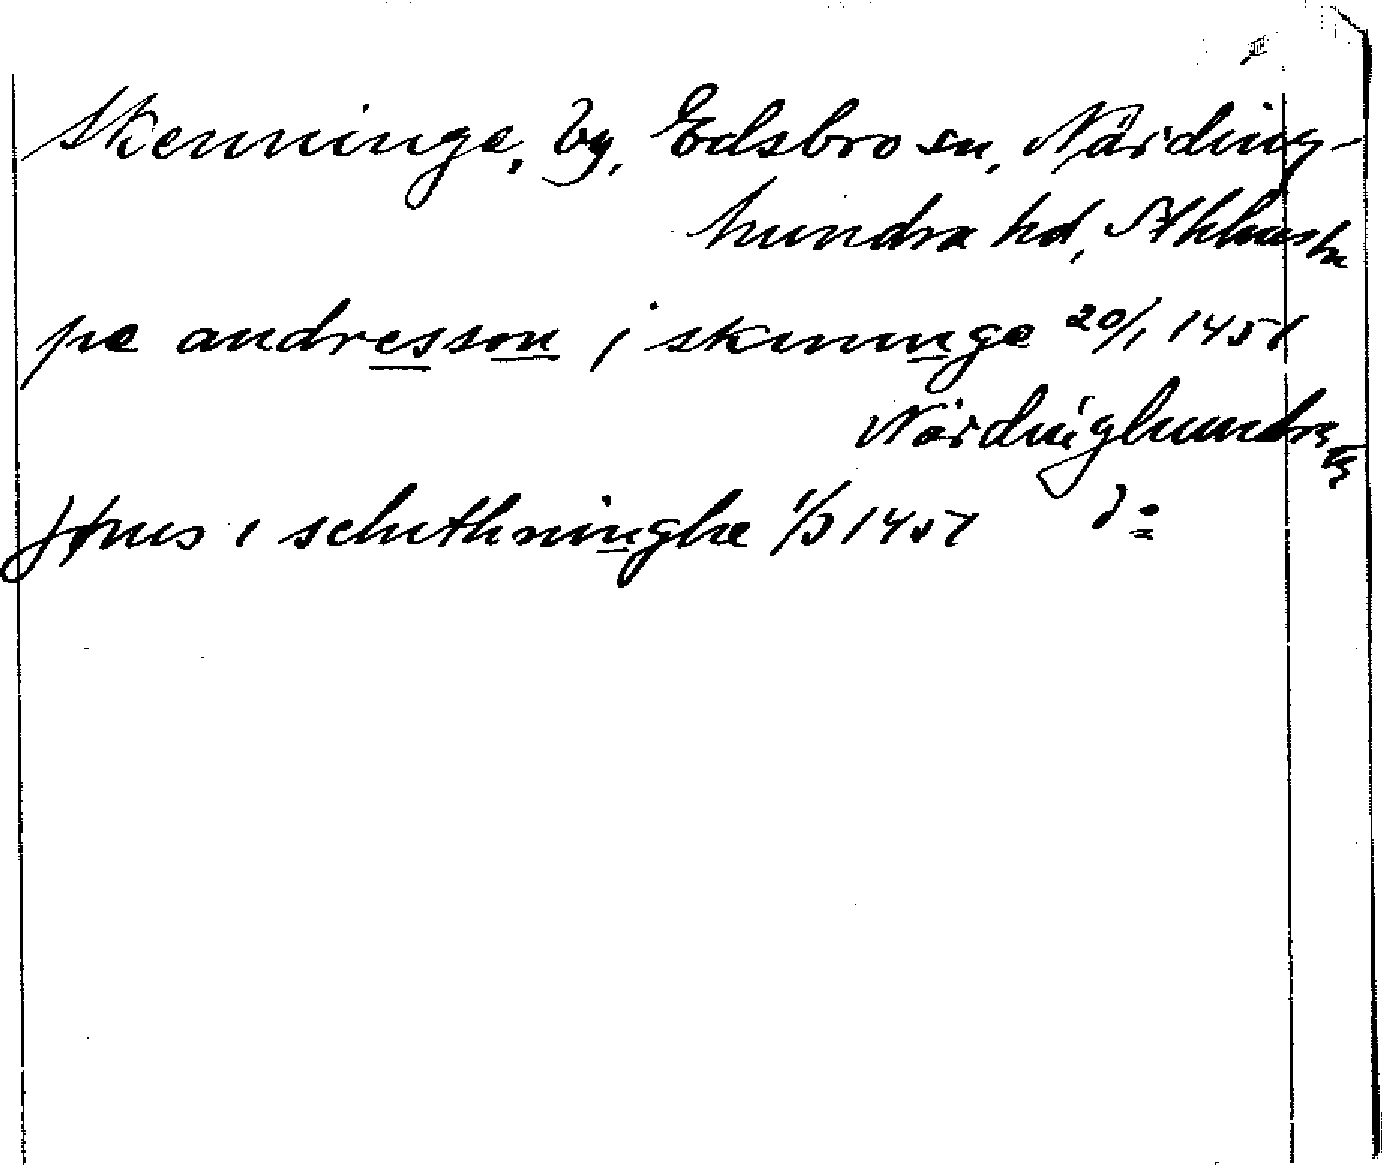 Skenninge, by, Edsbro sn, Närding-
hundra hd, Sthlms ln
pe andresson j skeninge 20/1 1451
Närdinghundra
Jöns i schethninghe 1/3 1451 do